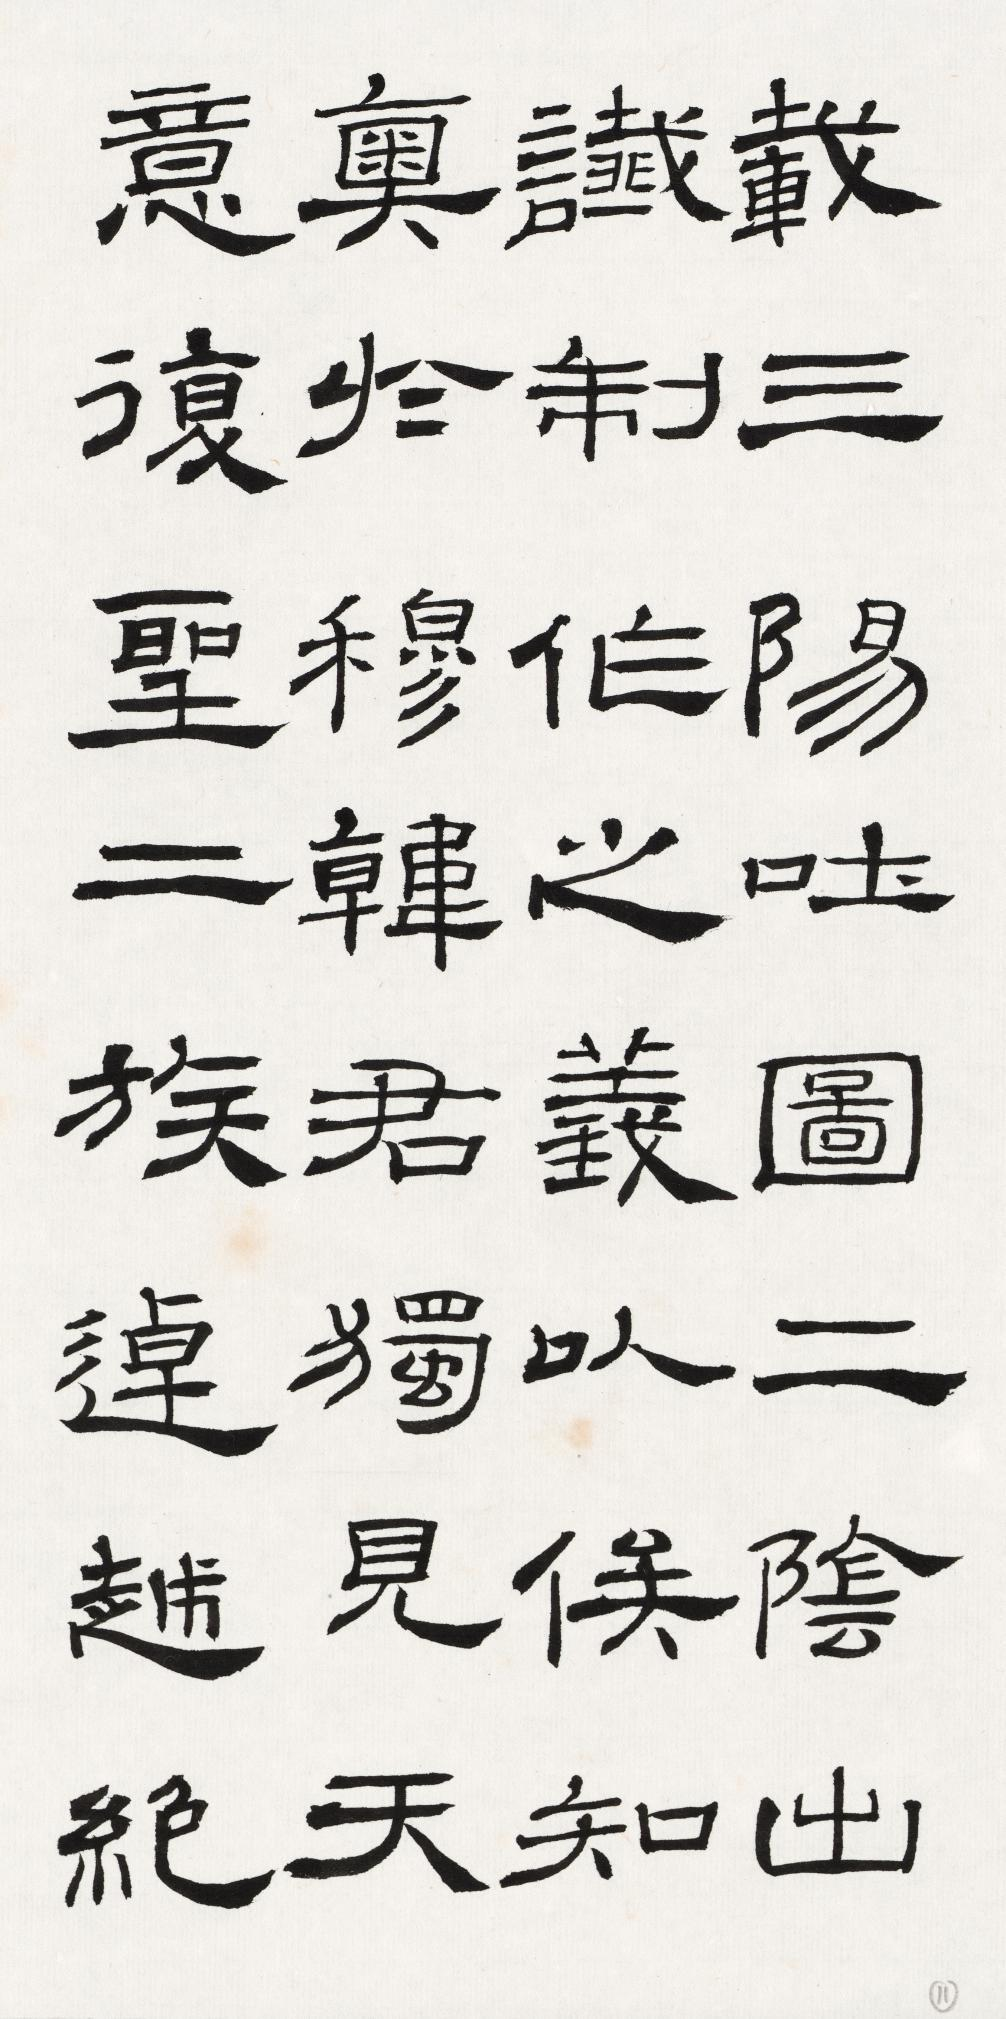 載三陽吐圖二陰出
讖制作之義以俟知
奧於穆韓君獨見天
意復聖二族逴越絕
11